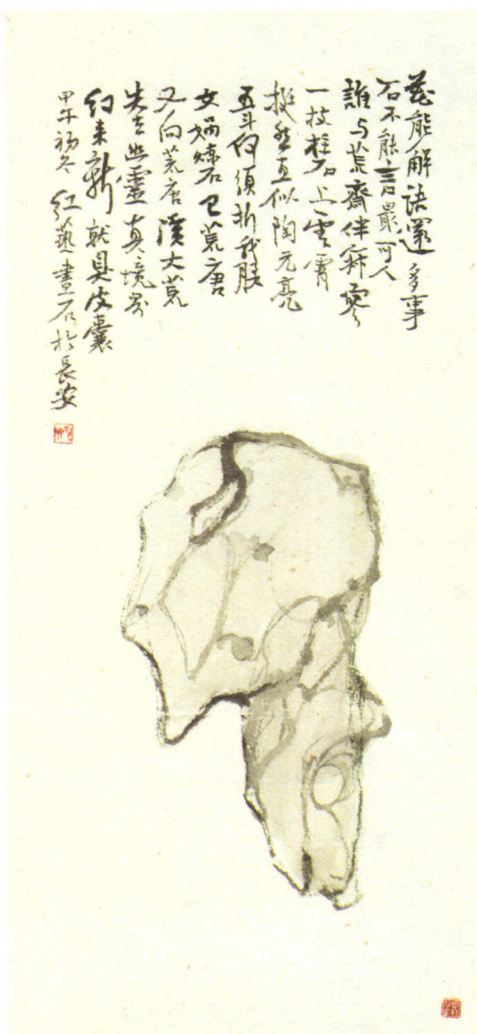 花能解語還多事
石不能言最可人
誰与荒齋伴寂寥
一枝柱石上雲霄
挺然直似陶元亮
五斗何須折我腰
女媧煉石已荒唐
又向荒唐演大荒
失去幽靈真境界
幻来新就臭皮囊
甲午初冬紅藝畫石於長安